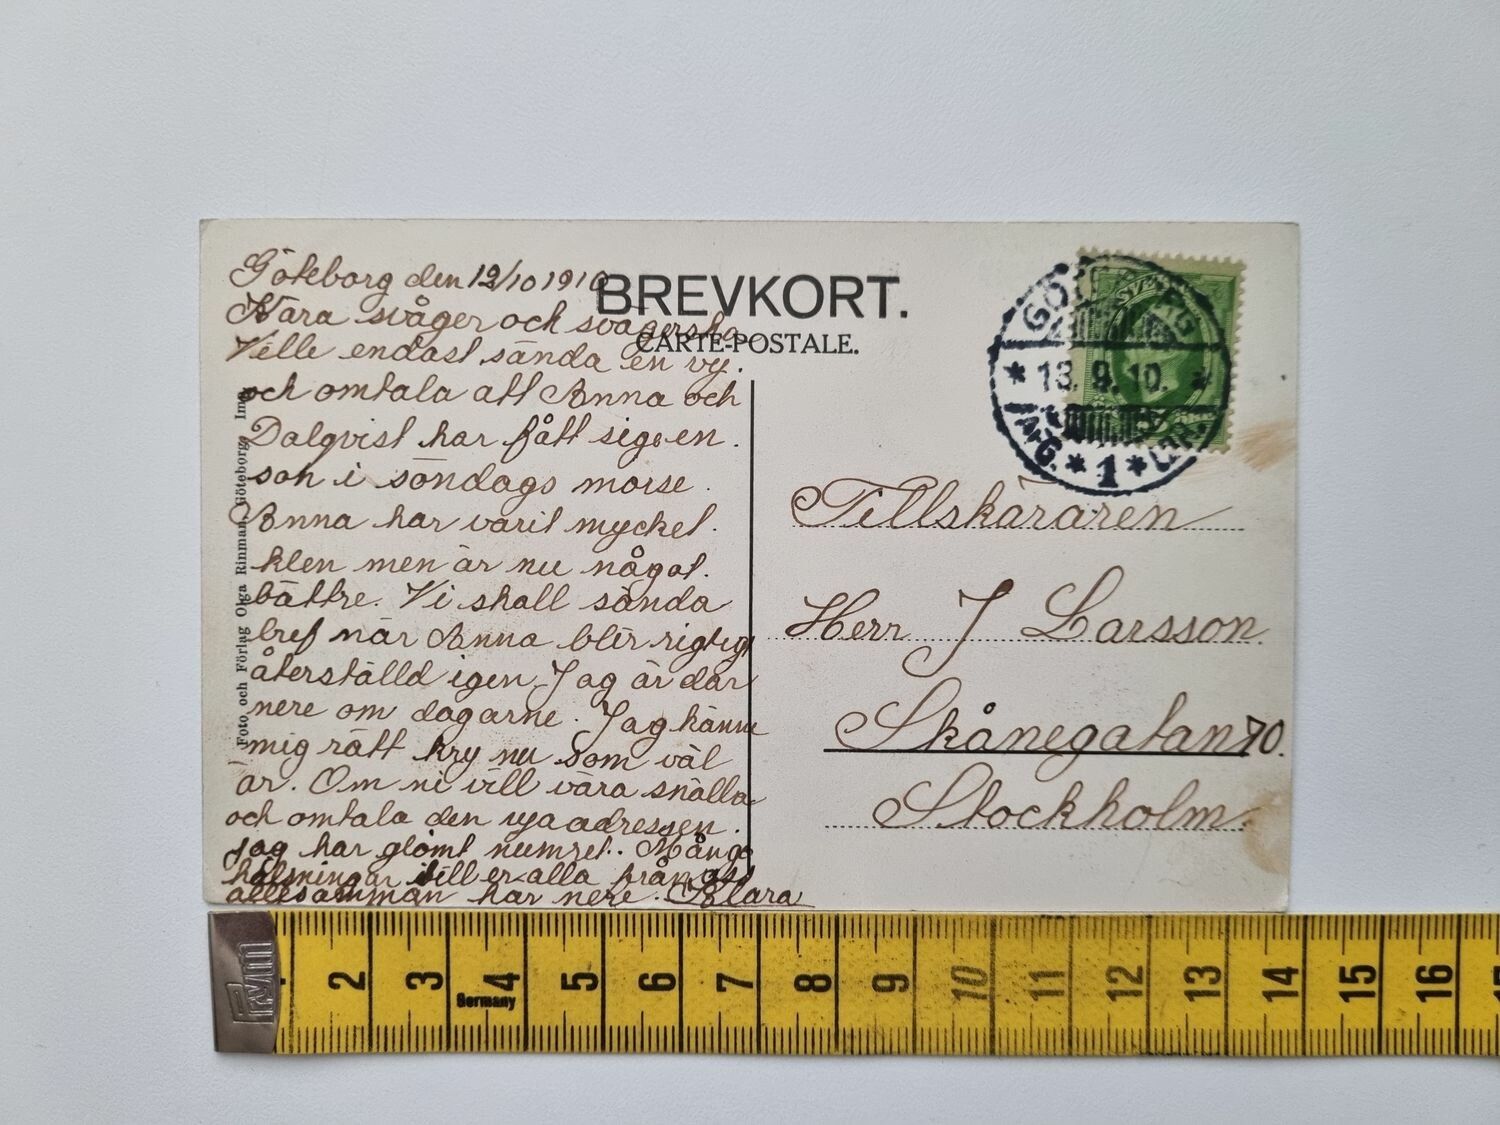 Göteborg den 12/10 1910
Kära svåger och svägerska
Ville endast sända en vy.
och omtala att Anna och
Dalqvist har fått sig en.
son i söndags morse.
Anna har varit mycket.
klen men är nu något.
bättre. Vi skall sända
bref när Anna blir rigtigt
återställd igen. Jag är där
nere om dagarne. Jag känne
mig rätt kry nu som väl
är. Om ni vill vara snälla
och omtala den nya adressen.
jag har glömt numret. Många
hälsningar till er alla från oss
allesamman har nere. Klara
BREVKORT.
CARTE-POSTALE.
Foto och Förlag Olga Rinman, Göteborg. Imp.
SVERIGE
GÖTEBORG
* 13. 9. 10. *
* 1 *
Tillskäraren
Herr J Larsson.
Skånegatan 70.
Stockholm.
Prym
Germany
2 3 4 5 6 7 8 9 10 11 12 13 14 15 16